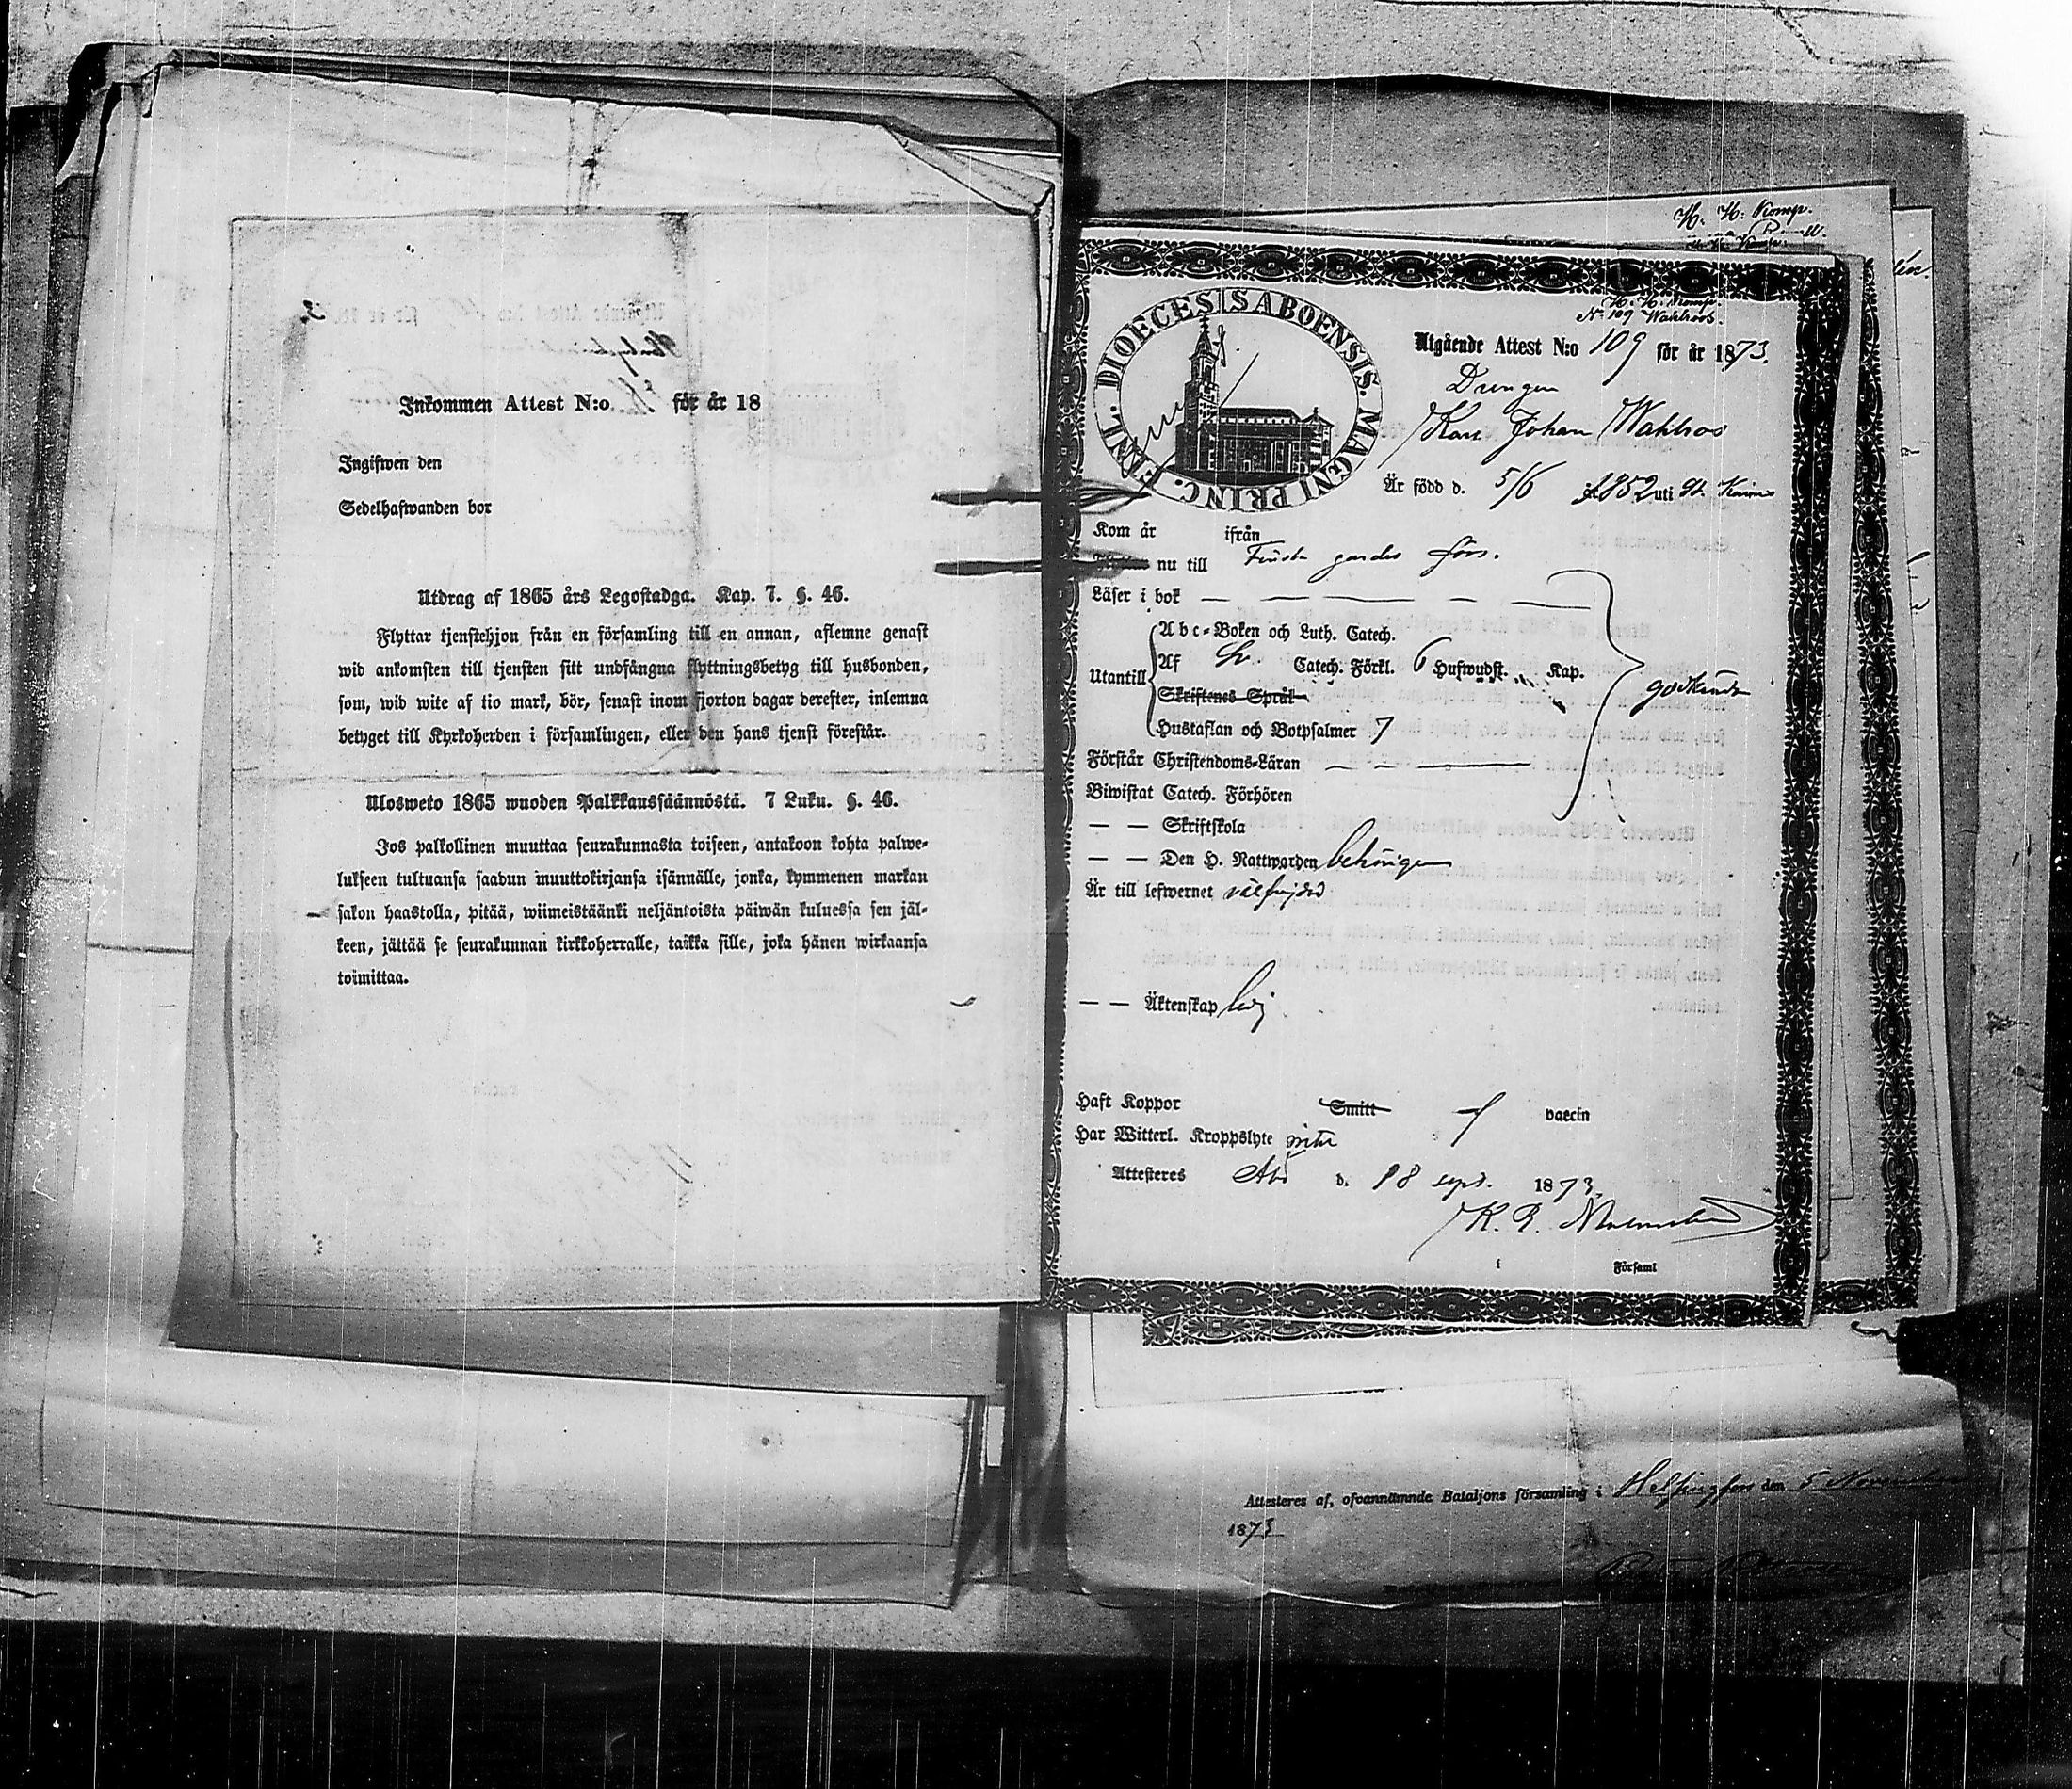 Inkommen Attest N:o för år 18
Ingifwen den
Sedelhafwanden bor
Utdrag af 1865 års Legostadga. Kap. 7. §. 46.
Flyttar tjenstehjon från en församling till en annan, aflemne genast
wid ankomsten till tjensten sitt undfångna flyttningsbetyg till husbonden,
som, wid wite af tio mark, bör, senast inom fjorton dagar derefter, inlemna
betyget till Kyrkoherden i församlingen, eller den hans tjenst förestår.
Ulosweto 1865 wuoden Palkkaussäännöstä. 7 Luku. §. 46.
Jos palkollinen muuttaa seurakunnasta toiseen, antakoon kohta palwe-
lukseen tultuansa saadun muuttokirjansa isännälle, jonka, kymmenen markan
sakon haastolla, pitää, wiimeistäänki neljäntoista päiwän kuluessa sen jäl-
keen, jättää se seurakunnan kirkkoherralle, taikka sille, joka hänen wirkaansa
toimittaa.
H. H. Komp.
H. H. Komp.
N:o 109 Wahlroos.
DIOECESIS ABOENSIS. MAGNI PRINC. FINL.
Utgående Attest N:o 109 för år 1873.
Drengen
Karl Johan Wahlros
Är född d. 5/6 1852 uti St. Karins
Kom år ifrån
nu till Finska gardes förs.
Läser i bok
Abc-Boken och Luth. Catech.
Utantill Af Sv. Catech. Förkl. 6 Hufwudst. Kap.
godkändt
Skriftenes Språk
Hustaflan och Botpsalmer 7
Förstår Christendoms-Läran
Biwistat Catech. Förhören
— — Skriftskola
— — Den H. Nattwarden behörigen
Är till lefwernet välfrejdad
— — Äktenskap ledig
Haft Koppor Smitt vaccin
Har Witterl. Kroppslyte inte
Attesteres Åbo d. 18 sept. 1873.
K. R.
i Församl
Attesteras af, ofvannämnde Bataljons församling i Helsingfors den 5 November
1873